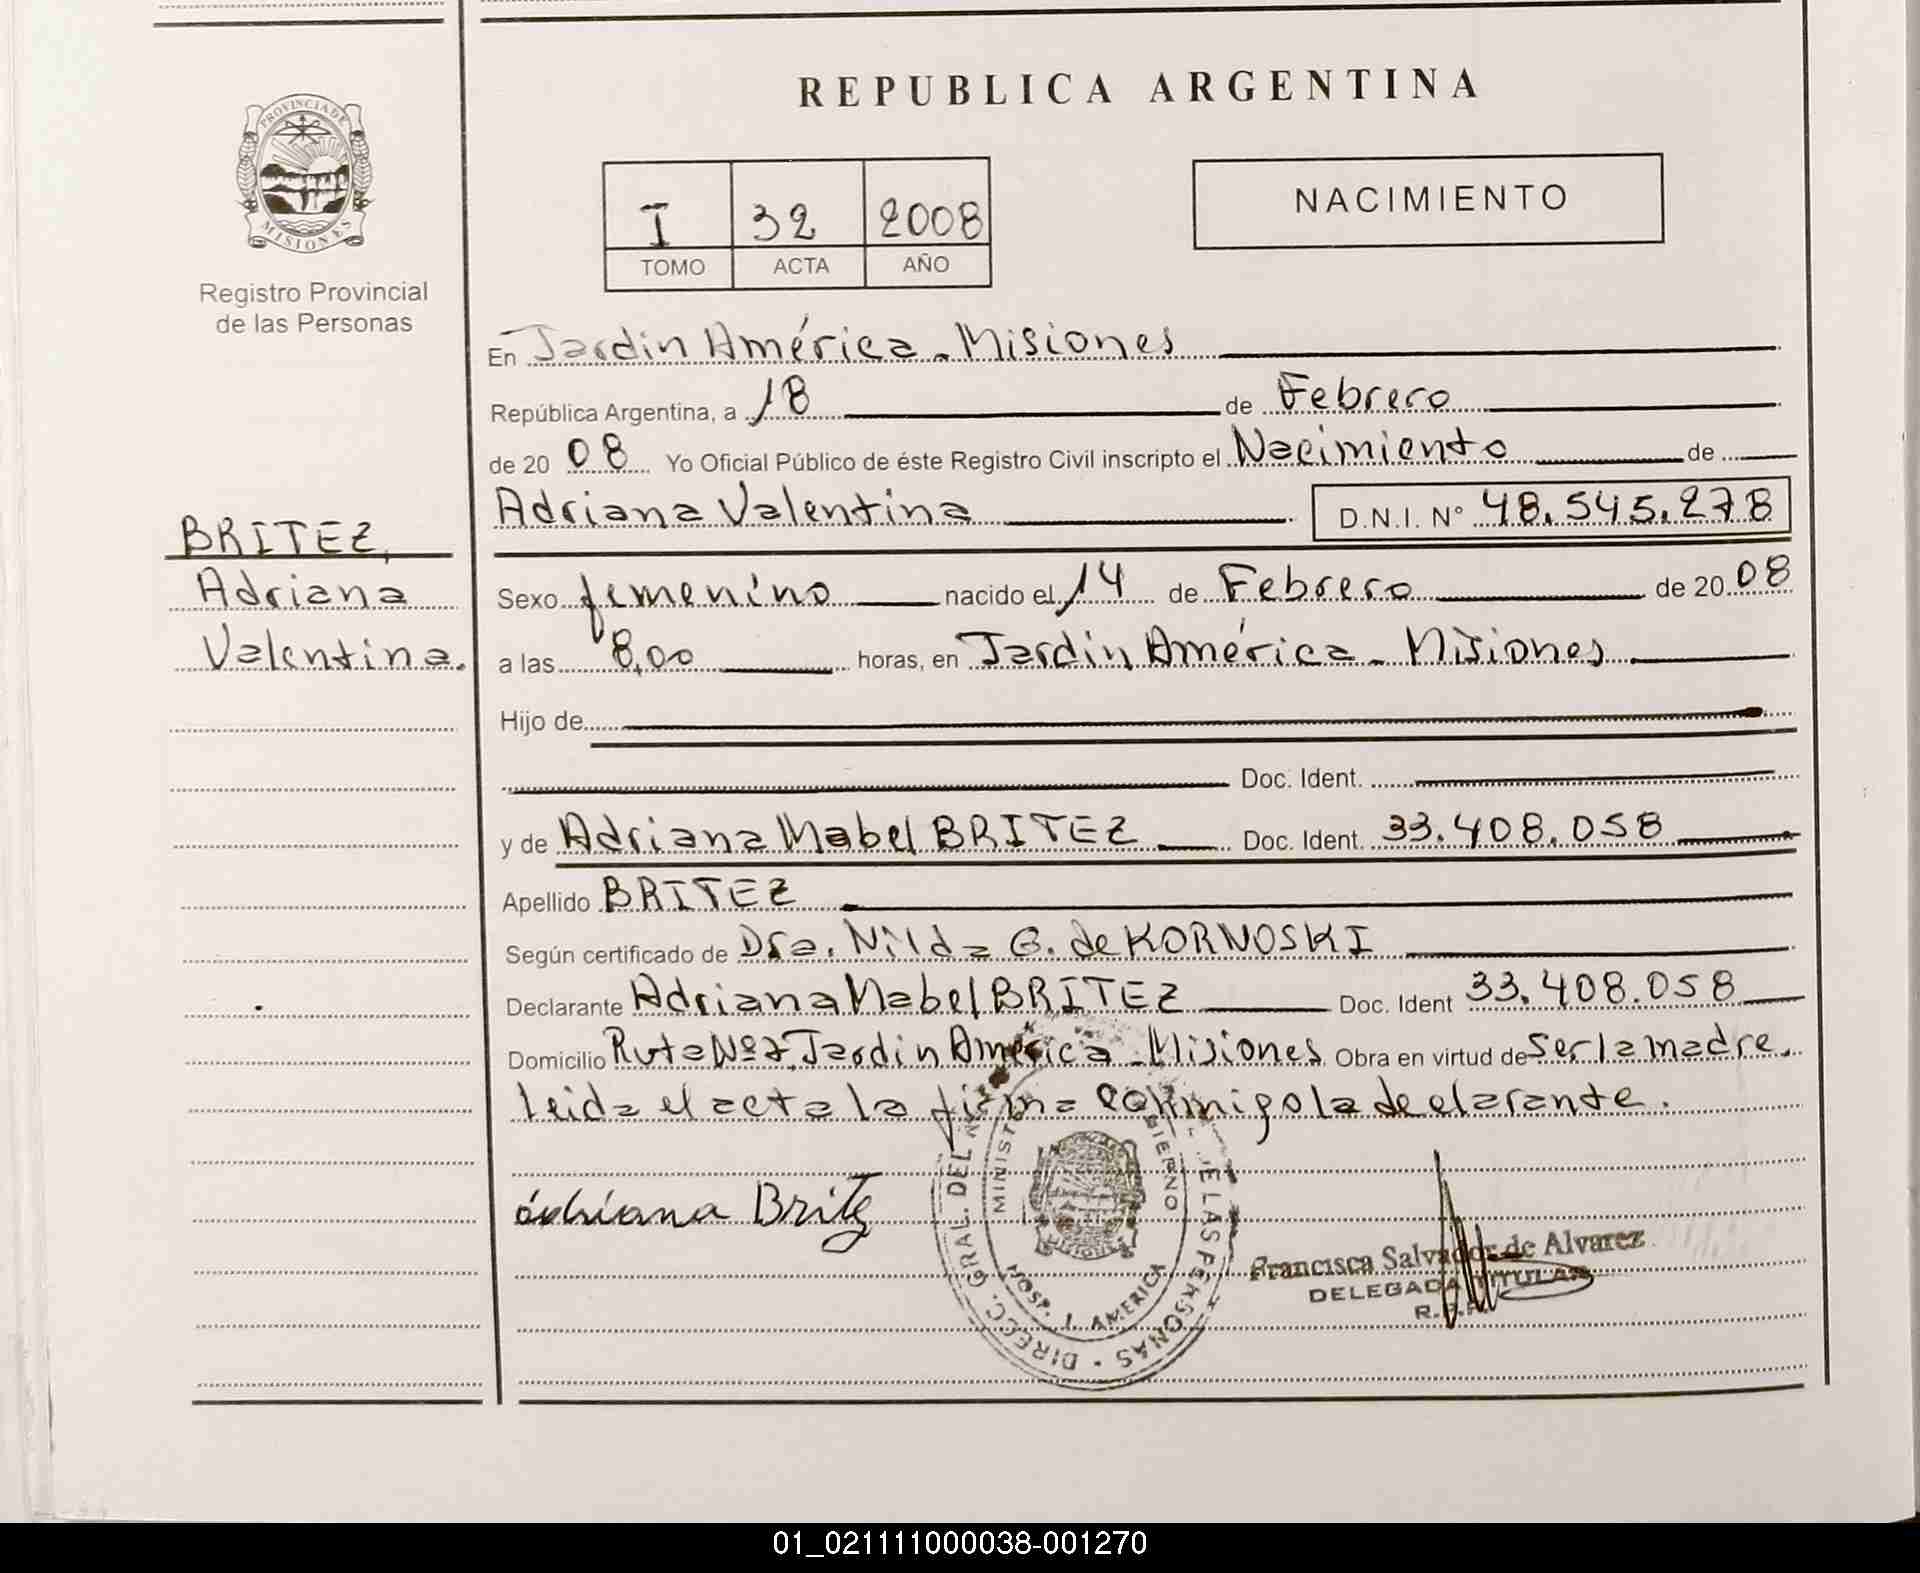 PROVINCIA DE
MISIONES
Registro Provincial
de las Personas
BRITEZ,
Adriana
Valentina.
REPUBLICA ARGENTINA
I 32 2008
TOMO ACTA AÑO
NACIMIENTO
En Jardín América - Misiones
República Argentina, a 18 de Febrero
de 20 08 Yo Oficial Público de éste Registro Civil inscripto el Nacimiento de
Adriana Valentina D.N.I. N° 48.545.278
Sexo femenino nacido el 14 de Febrero de 20 08
a las 8,00 horas, en Jardín América - Misiones
Hijo de
Doc. Ident.
y de Adriana Mabel BRITEZ Doc. Ident. 33.408.058
Apellido BRITEZ
Según certificado de Dra. Nilda G. de KORNOSKI
Declarante Adriana Mabel BRITEZ Doc. Ident 33.408.058
Domicilio Ruta Nº 7, Jardín América - Misiones Obra en virtud de ser la madre.
Leida el acta la firma conmigo la declarante.
Adriana Britez
DIRECC. GRAL. DEL DE LAS PERSONAS
HOSP. J. AMERICA
Francisca Salvador de Alvarez
DELEGADA TITULAR
R.P.P.
01_021111000038-001270